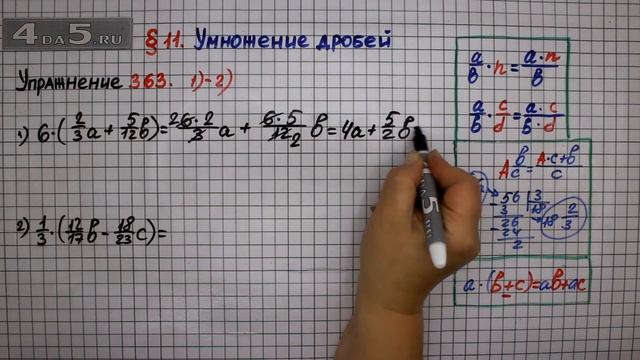 4DA5.RU
§ 11. Умножение дробей
Упражнение 363. 1)-2)
1) 6·(2/3 a + 5/12 b) = 2 6·2/3 a + 6·5/12 2 b = 4a + 5/2 b
2) 1/3·(12/17 b - 18/23 c) =
a/b · n = a·n/b
a/b · c/d = a·c/b·d
A b/c = A·c+b/c
56 3
3 18
26
24
2
18 2/3
a·(b+c)=ab+ac
5